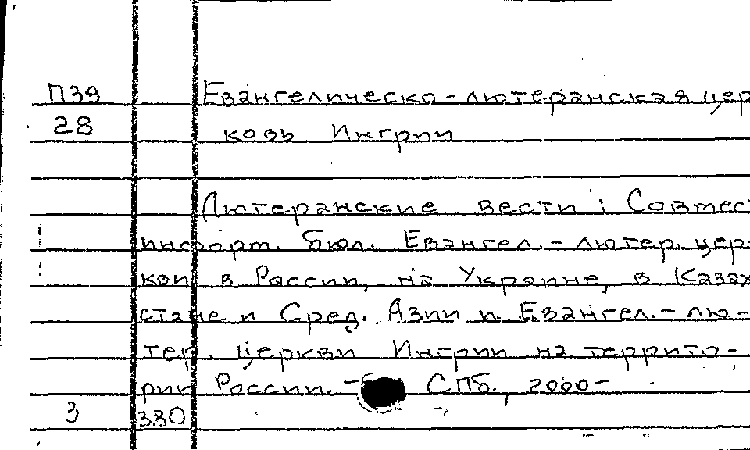 П39 Евангелическо-лютеранская цер
28 ковь Ингрии
Лютеранские вести : Совмес
информ. бюл. Евангел.-лютер. цер
кви в России, на Украине, в Казах
стане и Сред. Азии и Евангел.-лю-
тер. церкви Ингрии на террито-
рии России. - СПб., 2000-
3 330